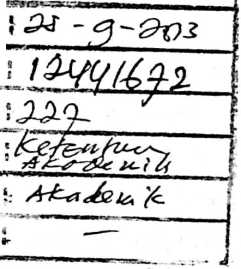 : 25-9-2013
: 12441672
: 227
: Ketentuan
Akademik
: Akademik
: -